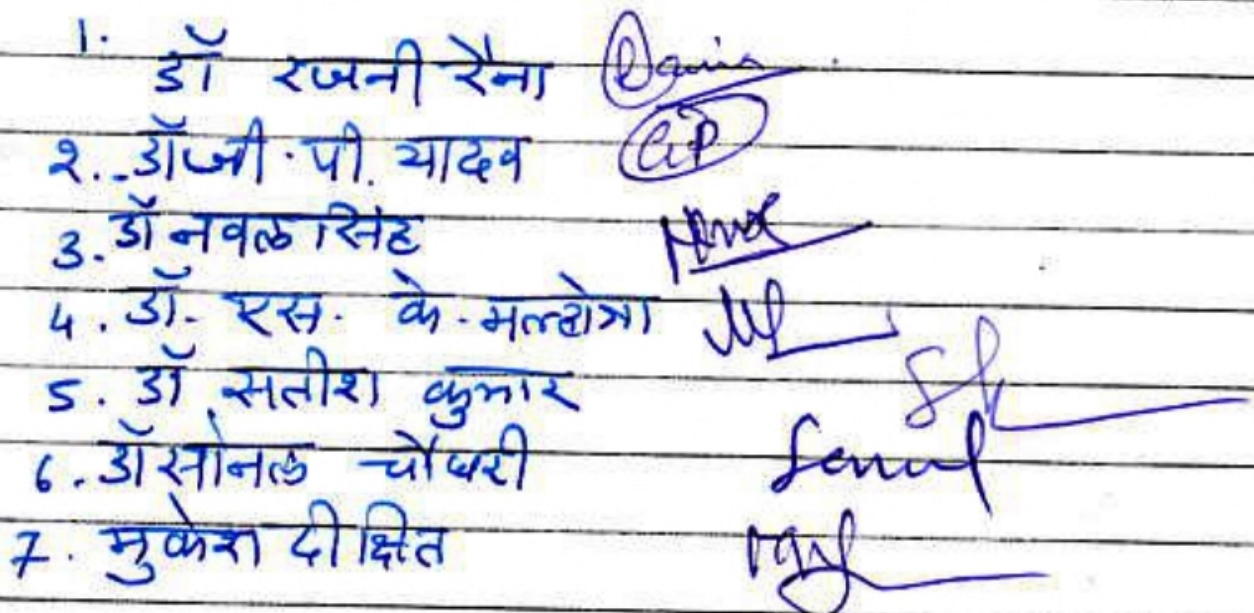 1. डॉ रजनी रैना
2. डॉ जी. पी. यादव
3. डॉ नवल सिंह
4. डॉ. एस. के. मल्होत्रा
5. डॉ सतीश कुमार
6. डॉ सोनल चौधरी
7. मुकेश दीक्षित